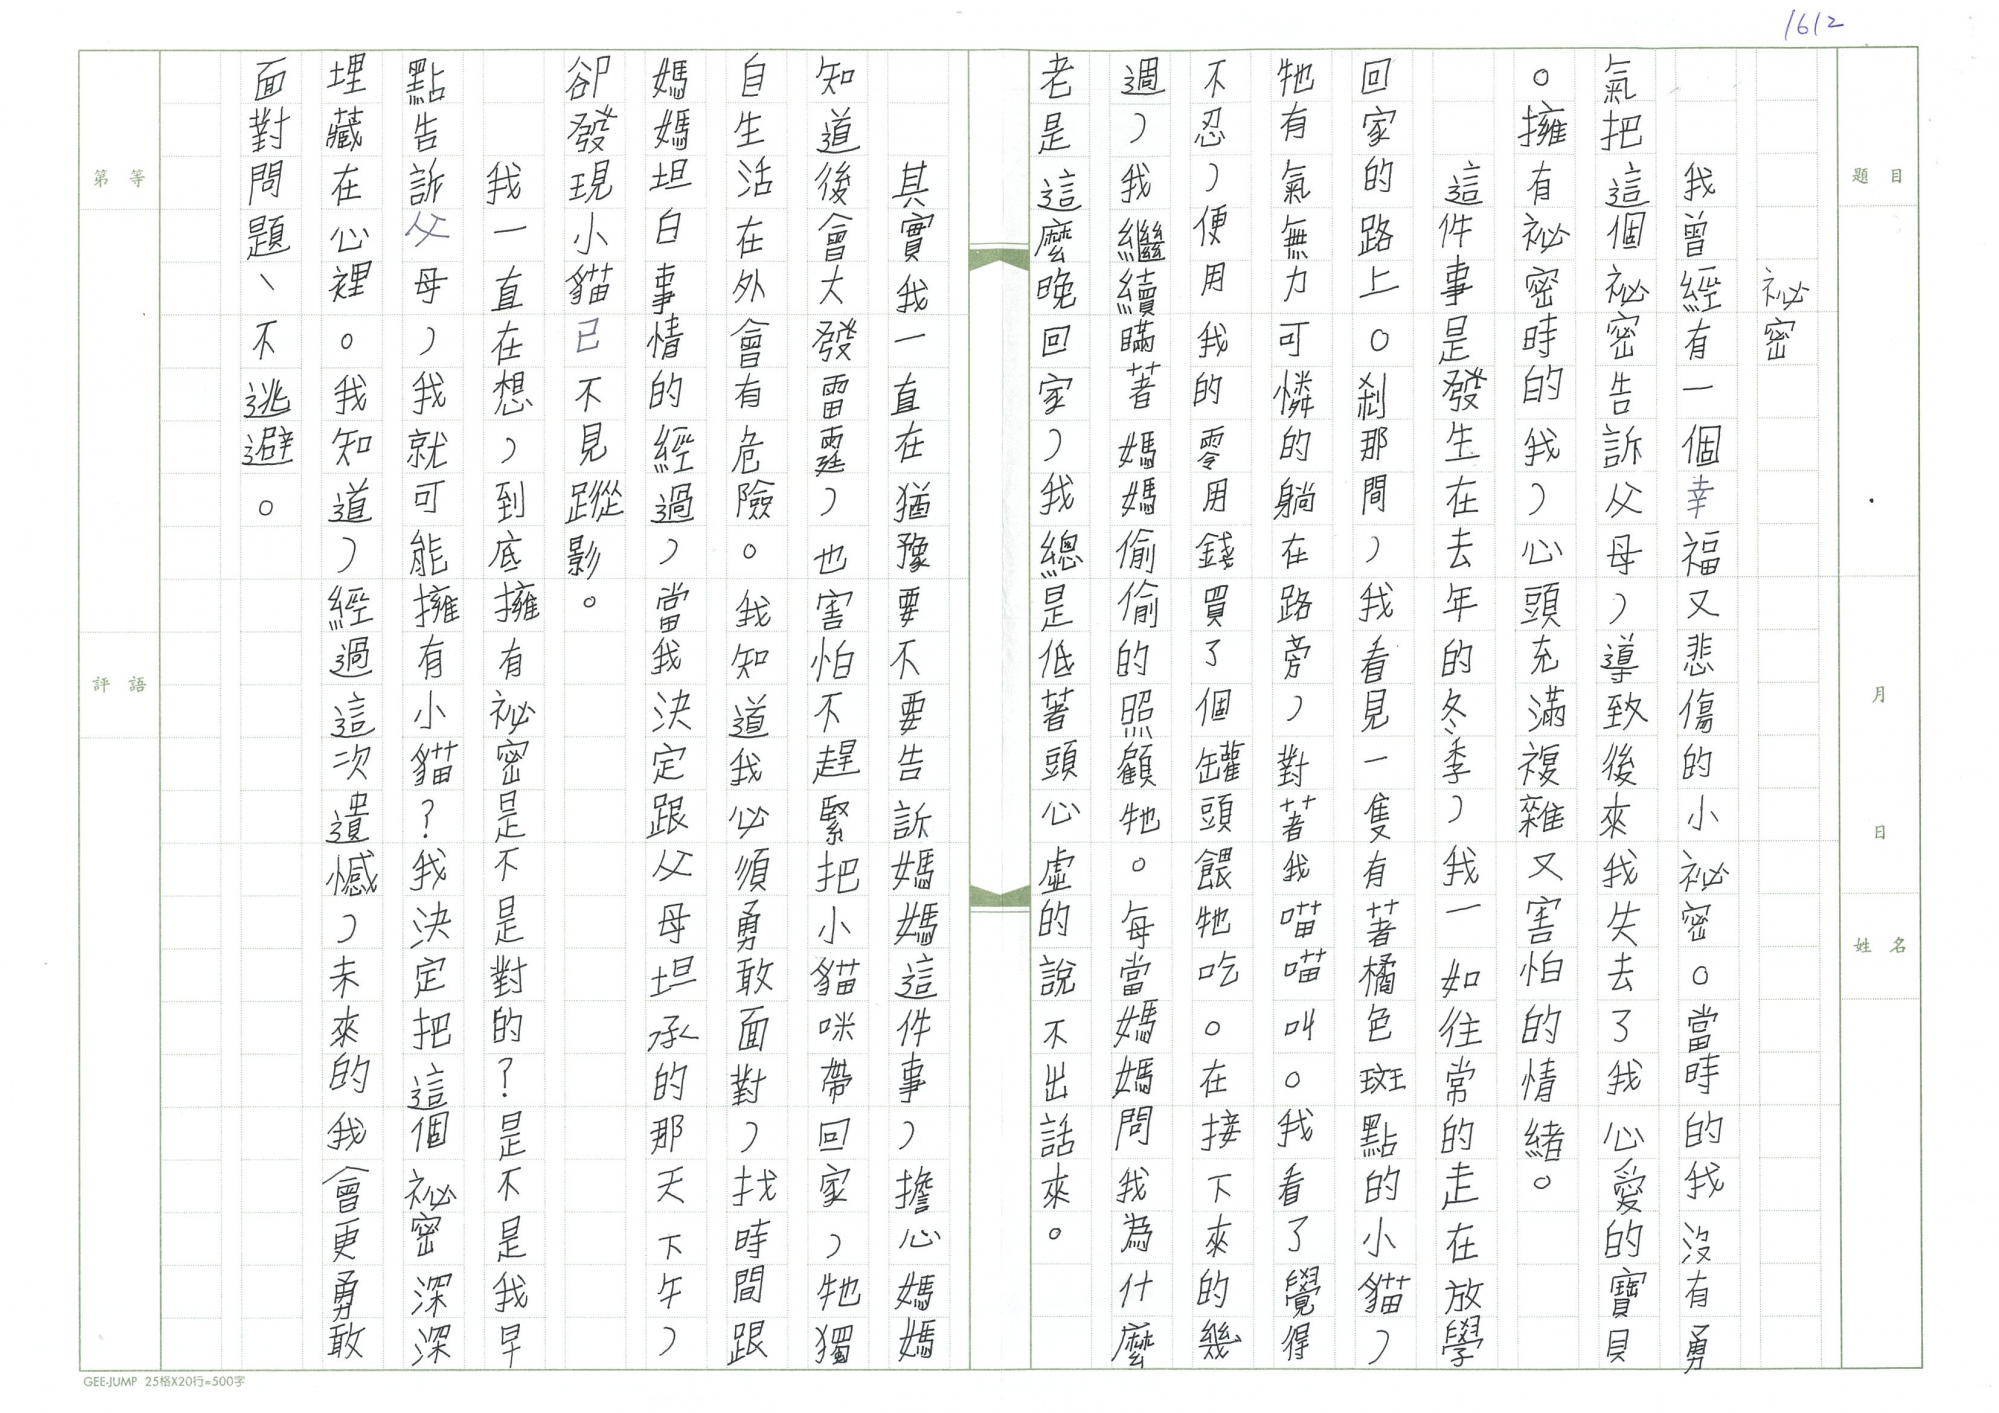 1612
題目
月
日
姓名
祕密
我曾經有一個幸福又悲傷的小祕密。當時的我沒有勇
氣把這個祕密告訴父母,導致後來我失去了我心愛的寶貝
。擁有祕密時的我,心頭充滿複雜又害怕的情緒。
這件事是發生在去年的冬季,我一如往常的走在放學
回家的路上。剎那間,我看見一隻有著橘色斑點的小貓,
牠有氣無力可憐的躺在路旁,對著我喵喵叫。我看了覺得
不忍,便用我的零用錢買了個罐頭餵牠吃。在接下來的幾
週,我繼續瞞著媽媽偷偷的照顧牠。每當媽媽問我為什麼
老是這麼晚回家,我總是低著頭心虛的說不出話來。
其實我一直在猶豫要不要告訴媽媽這件事,擔心媽媽
知道後會大發雷霆,也害怕不趕緊把小貓咪帶回家,牠獨
自生活在外會有危險。我知道我必須勇敢面對,找時間跟
媽媽坦白事情的經過,當我決定跟父母坦承的那天下午,
卻發現小貓已不見蹤影。
我一直在想,到底擁有祕密是不是對的?是不是我早
點告訴父母,我就可能擁有小貓?我決定把這個祕密深深
埋藏在心裡。我知道,經過這次遺憾,未來的我會更勇敢
面對問題、不逃避。
第等
評語
GEE-JUMP 25格X20行=500字